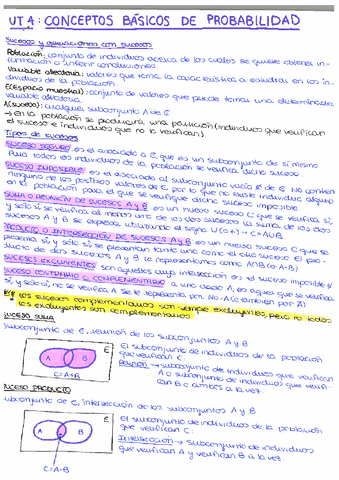 UT 4: CONCEPTOS BÁSICOS DE PROBABILIDAD
Sucesos y operaciones con sucesos
Población: conjunto de individuos acerca de los cuales se quiere obtener in-
formación o inferir conclusiones.
Variable aleatoria: valores que toma la característica a estudiar en los in-
dividuos de la población.
E(Espacio muestral): conjunto de valores que puede tomar una determinada
variable aleatoria.
A(suceso): cualquier subconjunto A de E
→ en la población se producirá una partición (individuos que verifican
el suceso e individuos que no lo verifican).
Tipos de sucesos
SUCESO SEGURO: es el asociado a E, que es un subconjunto de sí mismo
Para todos los individuos de la población se verifica dicho suceso
SUCESO IMPOSIBLE: es el asociado al subconjunto vacío Ø de E. No contiene
ninguno de los posibles valores de E, por lo que no existe individuo alguno
en la población para el que se verifique dicho suceso imposible.
SUMA O REUNIÓN DE SUCESOS A y B: es un nuevo suceso C que se verifica si,
y sólo si, se verifica al menos uno de los dos sucesos. La suma de los dos
sucesos A y B se expresa utilizando el signo U(o+) → C=AUB
PRODUCTO O INTERSECCIÓN DE SUCESOS A y B: es un nuevo suceso C que se
presenta si, y sólo si, se presentan tanto uno como el otro suceso. El pro-
ducto de dos sucesos A y B se representa como A∩B (o A·B)
SUCESOS EXCLUYENTES: son aquellos cuya intersección es el suceso imposible Ø
SUCESO CONTRARIO O COMPLEMENTARIO a uno dado A, es aquel que se verifica
si, y sólo si, no se verifica A. Se le representa por No-A (o también por Ā)
los sucesos complementarios son siempre excluyentes, pero no todos
los excluyentes son complementarios
SUCESO SUMA
Subconjunto de E, reunión de los subconjuntos A y B
E
A
B
C=A+B
El subconjunto de individuos de la población
que verifican C.
Reunión → subconjunto de individuos que verifican
A o subconjunto de individuos que verifi-
can B o ambos a la vez.
SUCESO PRODUCTO
Subconjunto de E, intersección de los subconjuntos A y B
E
A
B
C=A·B
El subconjunto de individuos de la población
que verifican C.
Intersección → subconjunto de individuos
que verifican A y verifican B a la vez.